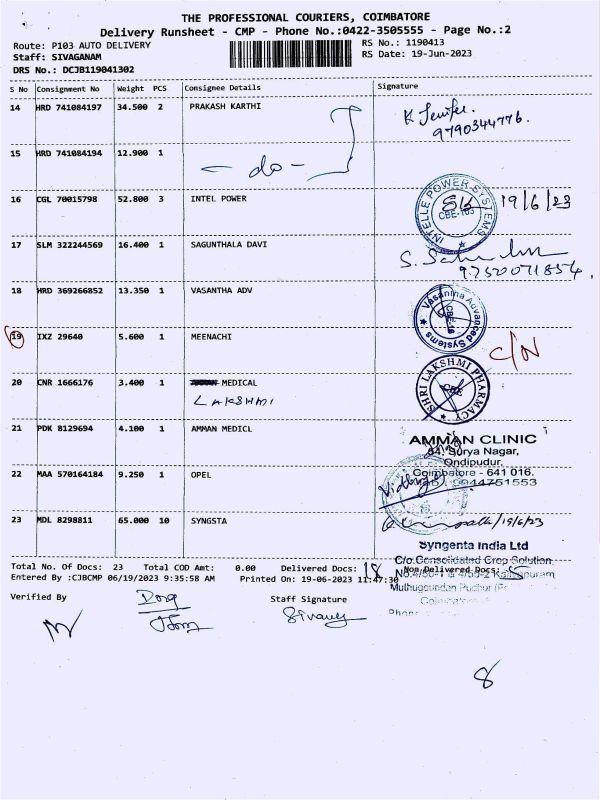 THE PROFESSIONAL COURIERS, COIMBATORE
Delivery Runsheet - CMP - Phone No.:0422-3505555 - Page No.:2
Route: P103 AUTO DELIVERY RS No.: 1190413
Staff: SIVAGANAM RS Date: 19-Jun-2023
DRS No.: DCJB119041302
S No Consignment No Weight PCS Consignee Details Signature
14 HRD 741084197 34.500 2 PRAKASH KARTHI
K Jenifer.
9790344776.
15 HRD 741084194 12.900 1 - do -
16 CGL 70015798 52.800 3 INTEL POWER
INTELLE POWER SYSTEMS CBE-103 19/6/23
17 SLM 322244569 16.400 1 SAGUNTHALA DAVI
9750071854,
18 HRD 369266852 13.350 1 VASANTHA ADV
Vasantha Advanced Systems
19 IXZ 29640 5.600 1 MEENACHI C/N
20 CNR 1666176 3.400 1 MEDICAL
LAKSHMI
SHRI LAKSHMI PHARMACY
21 PDK 8129694 4.100 1 AMMAN MEDICL
AMMAN CLINIC
54, Surya Nagar,
Ondipudur,
Coimbatore - 641 016.
9944751553
22 MAA 570164184 9.250 1 OPEL
23 MDL 8298811 65.000 10 SYNGSTA
/19/6/23
Syngenta India Ltd
C/o.Consolidated Crop Solution,
Total No. Of Docs: 23 Total COD Amt: 0.00 Delivered Docs: 18 Non Delivered Docs: 5
Entered By :CJBCMP 06/19/2023 9:35:58 AM Printed On: 19-06-2023 11:47:30
Muthugoundan Pudhur
Verified By Staff Signature
8